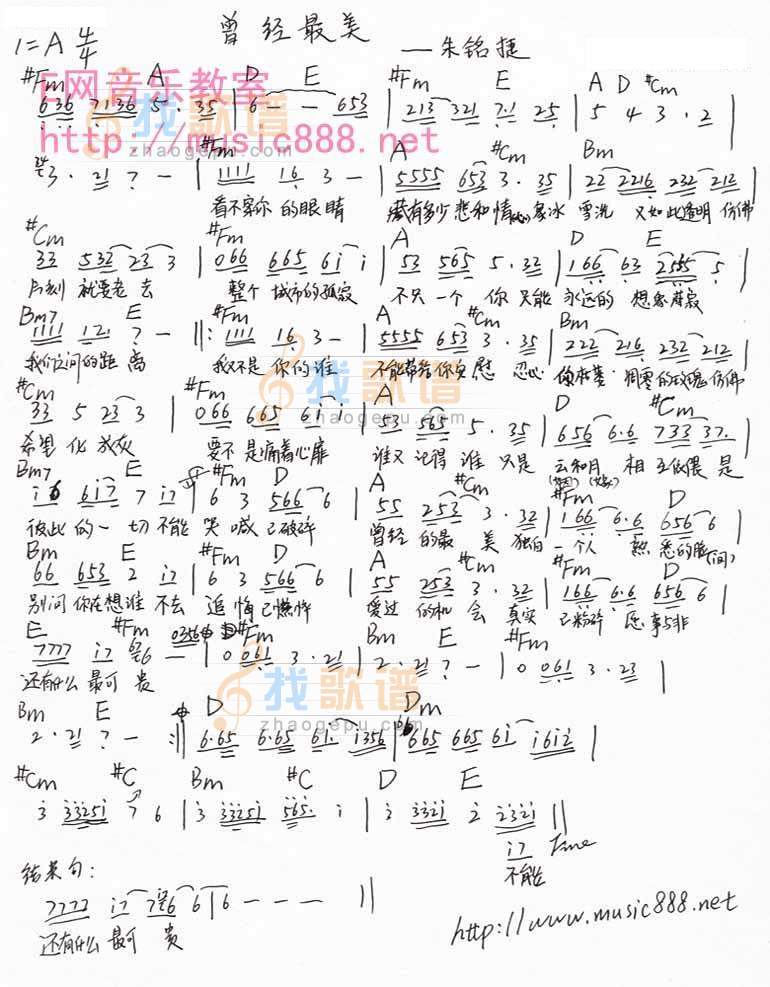 曾经最美
1=A 4/4
——朱铭捷
E网音乐教室
http://music888.net
找歌谱
zhaogepu.com
#Fm A D E #Fm E A D #Cm
636 7136 5· 35 | 6 - - 653 | 213 321 7·1 25 | 5 4 3 · 2 |
#Fm A #Cm Bm
3 · 21 7 - | 1111 16 3 - | 5555 653 3 · 35 | 22 2216 232 212 |
看不穿你 的眼睛 藏有多少 悲和情 冰 雪洗 又如此透明 仿佛
#Cm #Fm A D E
33 532 23 3 | 066 665 61 1 | 53 565 5 · 32 | 166 63 2555 5 |
片刻 就要老去 整个 城市的孤寂 不只一个 你 只能 永远的 想象 孤寂
Bm7 E #Fm A #Cm Bm
1111 121 7 - ||: 1111 16 3 - | 5555 653 3 · 35 | 222 216 232 212 |
我们之间的距离 我又不是 你的谁 不能带给你安慰 忍心 你 凋零的玫瑰 仿佛
#Cm #Fm A D #Cm
33 5 23 3 | 066 665 61 1 | 53 565 5 · 35 | 656 6·6 733 37· |
希望 化成灰 要不 是痛着心扉 谁又 记得 谁 只是 云和月 相 互依偎 是
Bm7 E #Fm D A #Cm #Fm D
16 617 7 17 | 6 3 566 6 | 55 253 3 · 32 | 166 6·6 656 6 |
彼此的一切 不能 哭 喊 已破碎 曾经 的最 美 独自 一个人 熟 悉的
Bm E #Fm D A #Cm #Fm D
66 653 2 17 | 6 3 566 6 | 55 253 3 · 32 | 166 6·6 656 6 |
别问 你在想谁 不去 追 悔 已憔悴 爱过 的机 会 真实 已粉碎 愿 事与非
E #Fm #Fm Bm E #Fm
7777 17 6 - | 0 061 3 · 21 | 2 · 21 7 - | 0 061 3 · 23 |
还有什么 最可 贵
Bm E D Dm
2 · 21 7 - :|| 6·65 6·65 61· 1356 | 665 665 61 1612 |
#Cm #C Bm #C D E
3 33251 7 6 | 3 33251 565· 1 | 2 3321 2 2321 ||
17 Fine
不能
结束句：
7777 17 76 6 | 6 - - - ||
还有什么 最可 贵
http://www.music888.net